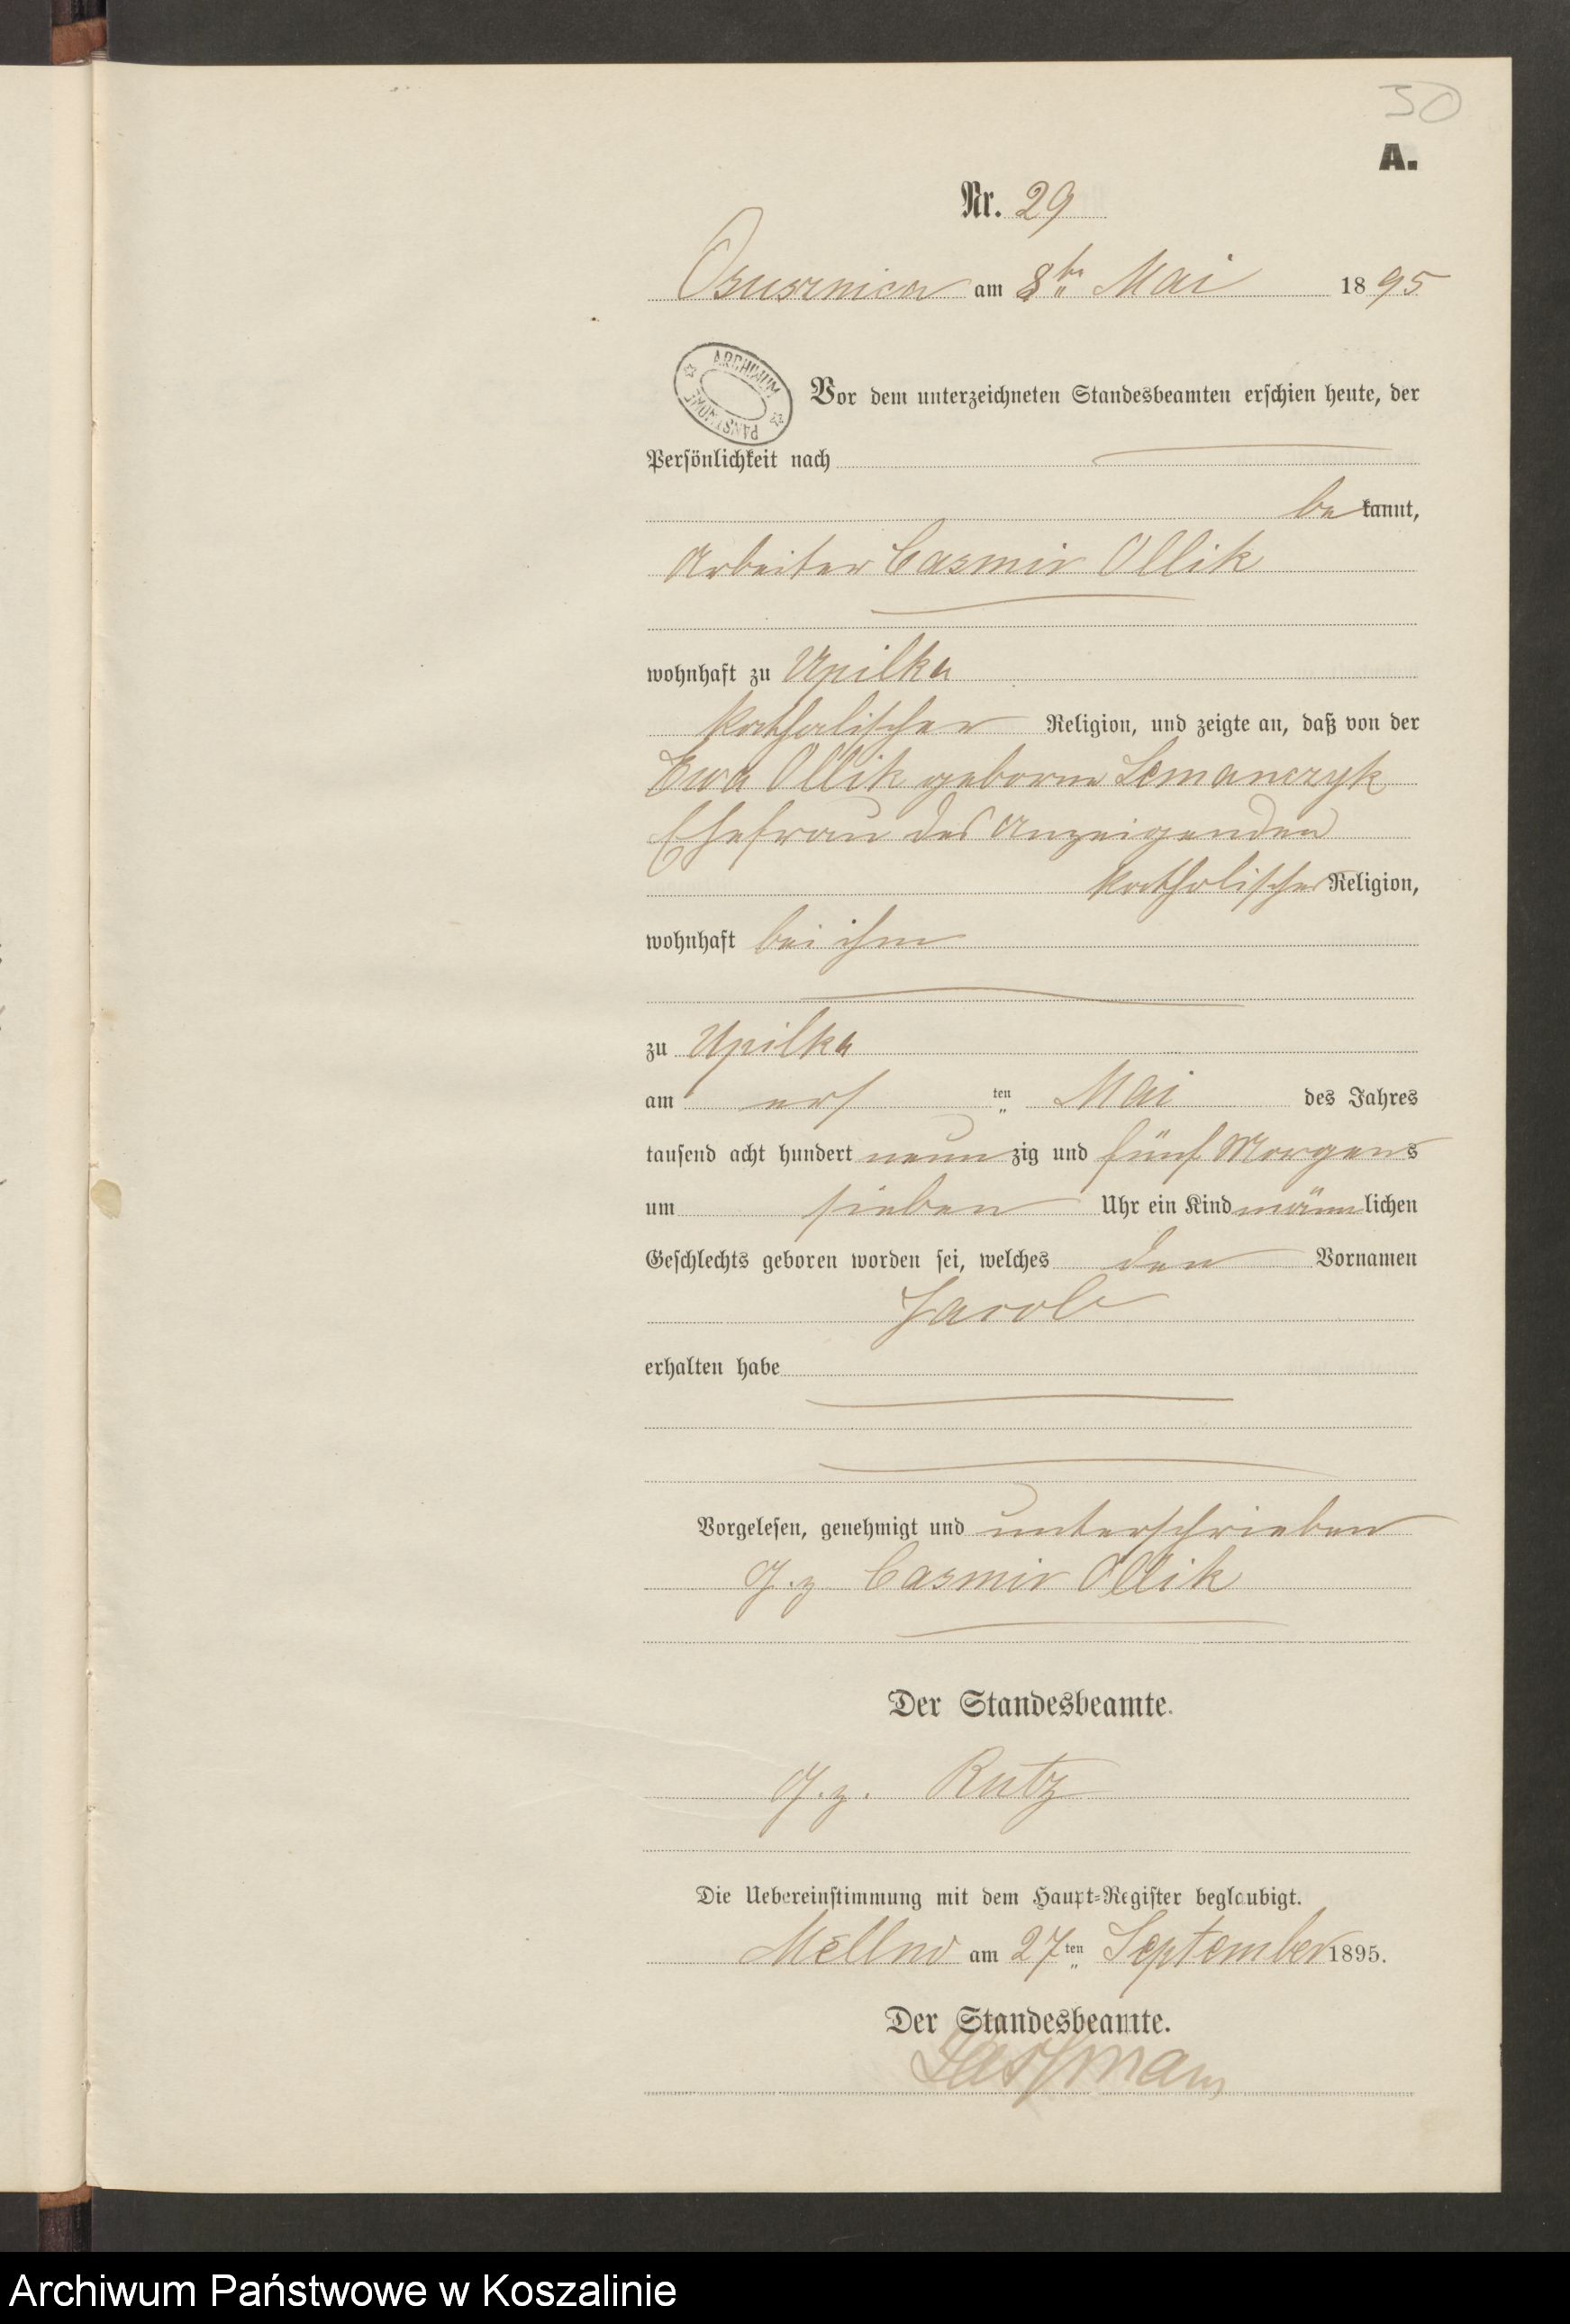 50
A.
Nr. 29
Osusznica am 8ten Mai 1895
ARCHIWUM PAŃSTWOWE
Vor dem unterzeichneten Standesbeamten erschien heute, der
Persönlichkeit nach
bekannt,
Arbeiter Casmir Ollik
wohnhaft zu Upilka
katholischer Religion, und zeigte an, daß von der
Ewa Ollik geborne Lemanczyk
Ehefrau des Anzeigenden
katholischer Religion,
wohnhaft bei ihm
zu Upilka
am ersten Mai des Jahres
tausend acht hundert neunzig und fünf Morgens
um sieben Uhr ein Kind männlichen
Geschlechts geboren worden sei, welches den Vornamen
Jacob
erhalten habe
Vorgelesen, genehmigt und unterschrieben
g. z Casmir Ollik
Der Standesbeamte.
g. z. Rutz
Die Uebereinstimmung mit dem Haupt-Register beglaubigt.
Mellno am 27ten September 1895.
Der Standesbeamte.
Archiwum Państwowe w Koszalinie